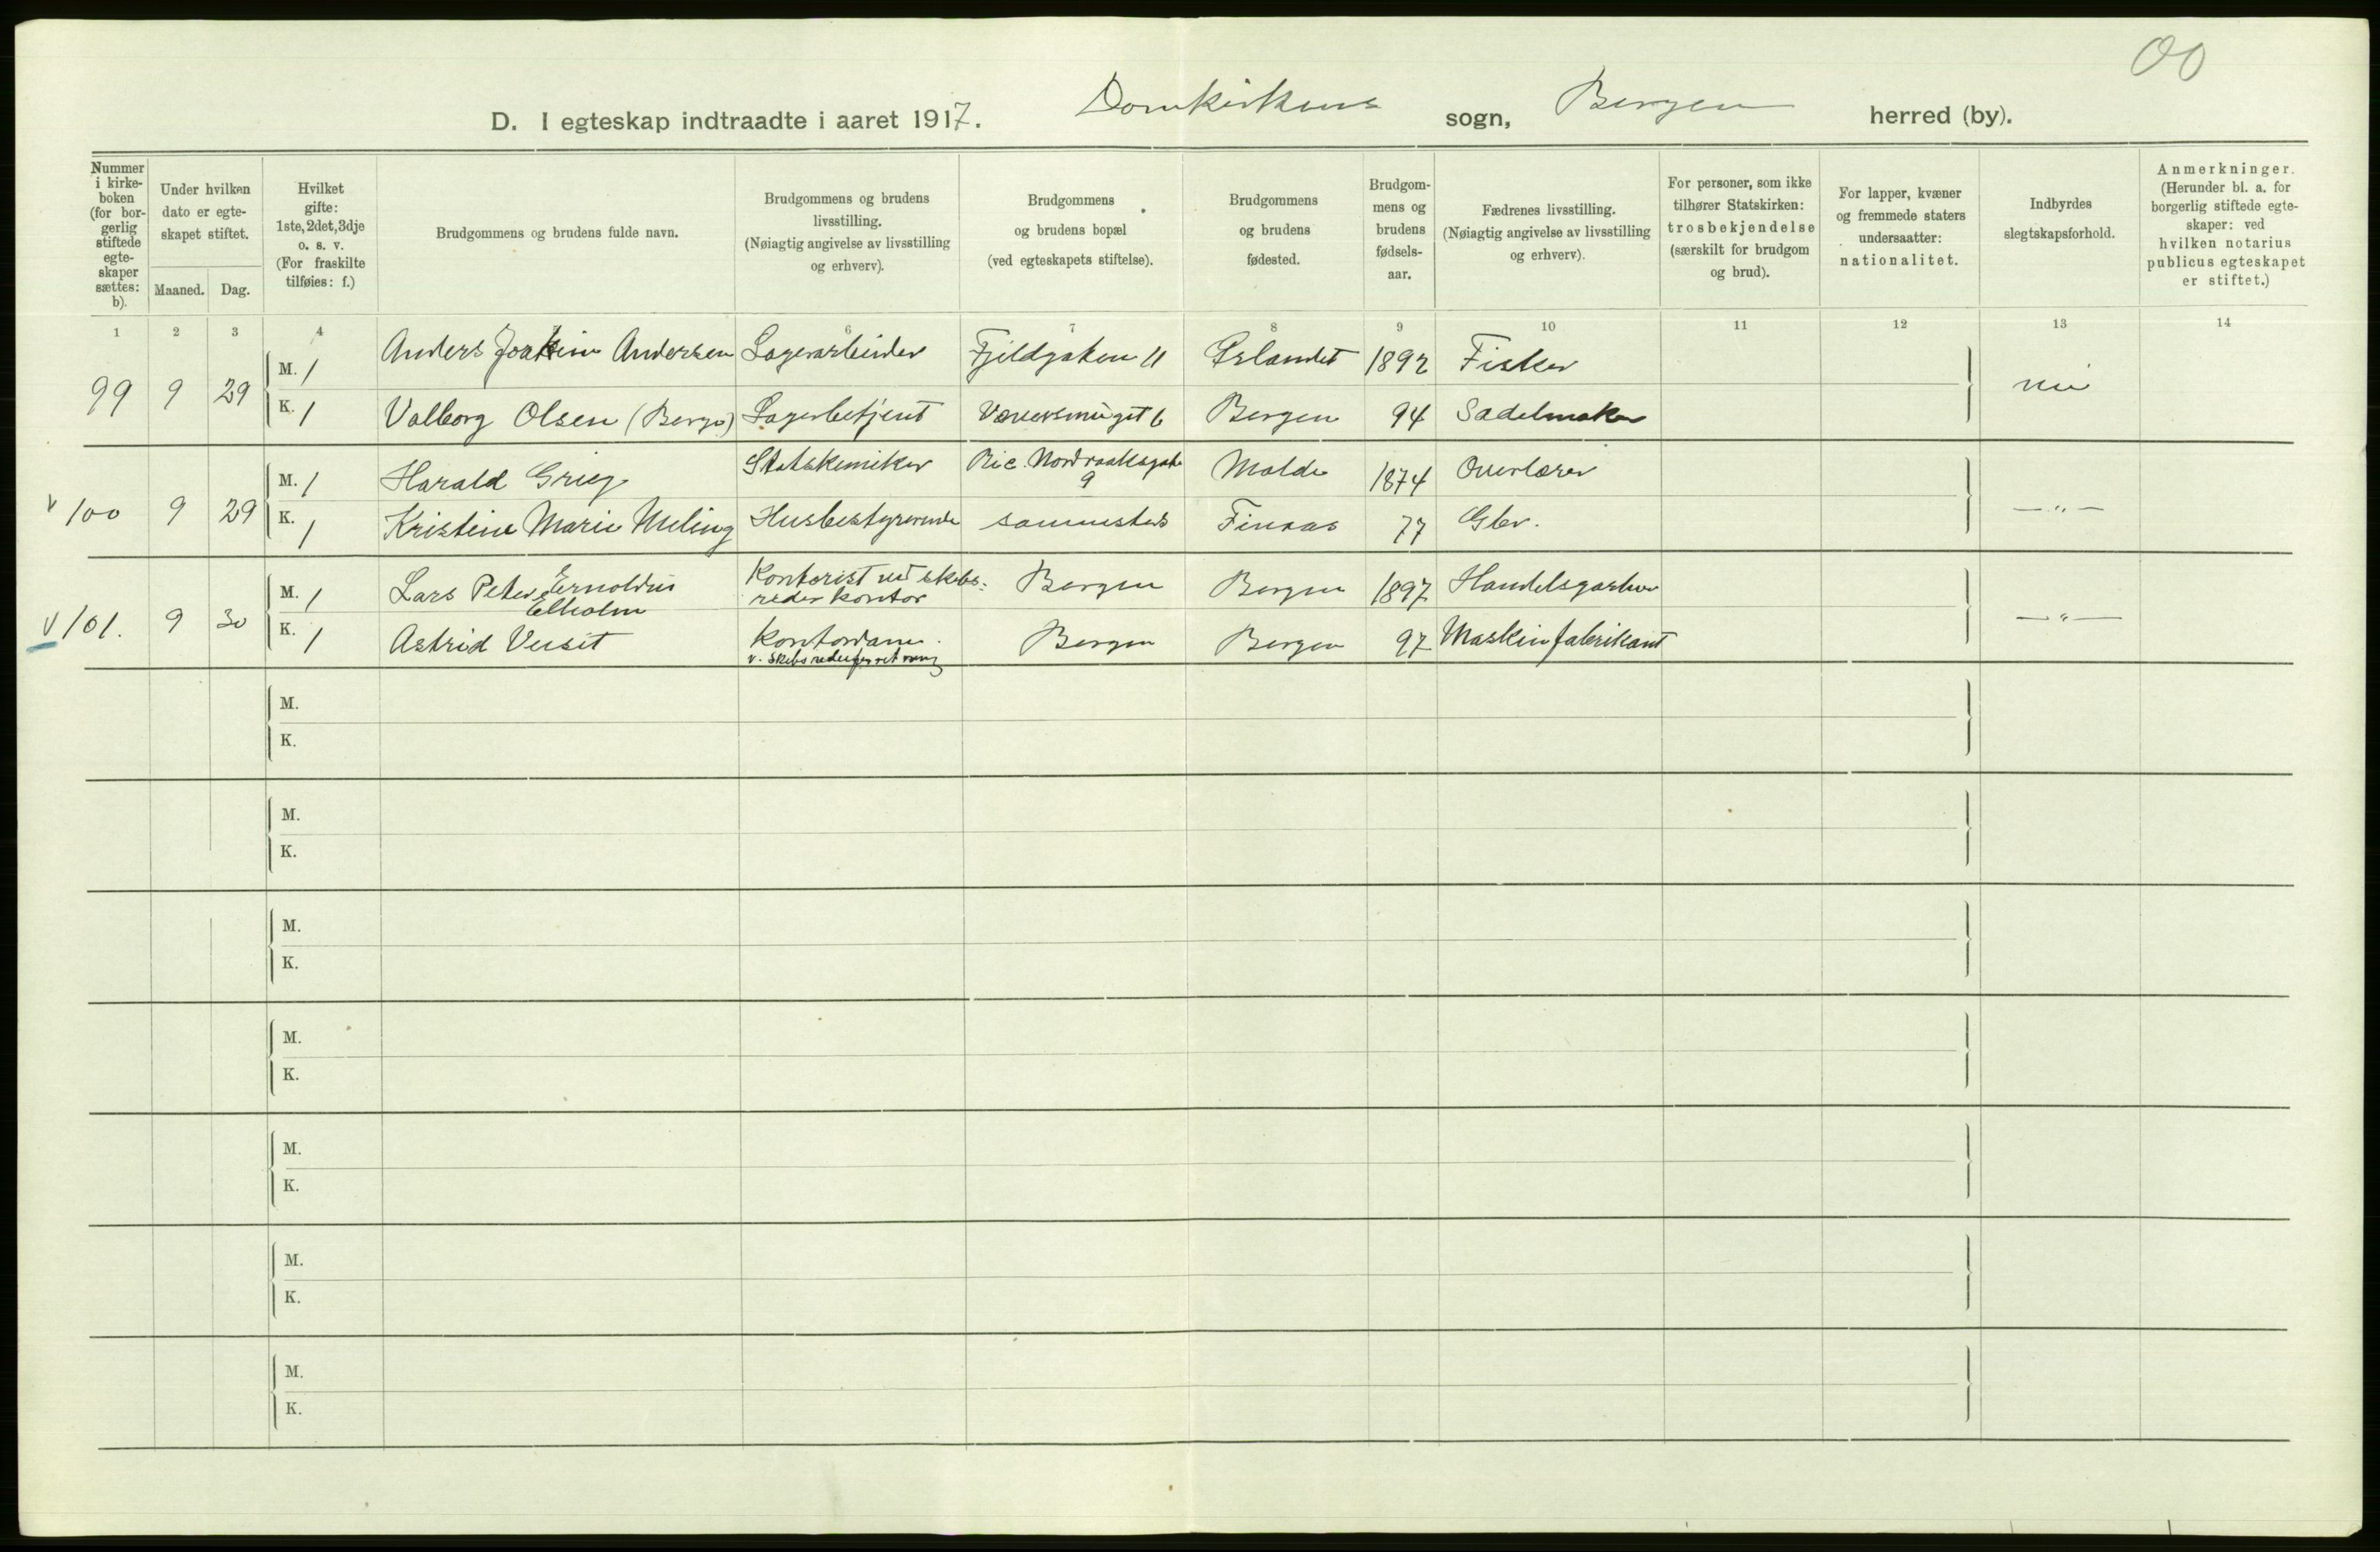 00
D. I egteskap indtraadte i aaret 1917. Domkirkens sogn, Bergen herred (by).
Nummer i kirke-boken (for bor-gerlig stiftede egte-skaper sættes: b).
Under hvilken dato er egte-skapet stiftet.
Maaned. Dag.
Hvilket gifte: 1ste, 2det, 3dje o. s. v. (For fraskilte tilføies: f.)
Brudgommens og brudens fulde navn.
Brudgommens og brudens livsstilling. (Nøiagtig angivelse av livsstilling og erhverv).
Brudgommens og brudens bopæl (ved egteskapets stiftelse).
Brudgommens og brudens fødested.
Brudgom-mens og brudens fødsels-aar.
Fædrenes livsstilling. (Nøiagtig angivelse av livsstilling og erhverv).
For personer, som ikke tilhører Statskirken: trosbekjendelse (særskilt for brudgom og brud).
For lapper, kvæner og fremmede staters undersaatter: nationalitet.
Indbyrdes slegtskapsforhold.
Anmerkninger. (Herunder bl. a. for borgerlig stiftede egte-skaper: ved hvilken notarius publicus egteskapet er stiftet.)
1 2 3 4 6 7 8 9 10 11 12 13 14
M. 1 Anders Joakim Andersen Lagerarbeider Fjeldgaten 11 Ørlandet 1892 Fisker
99 9 29 nei
K. 1 Valborg Olsen (Berge) Lagerbetjent Væversmuget 6 Bergen 94 Sadelmaker
M. 1 Harald Grieg Statskemiker Ric. Nordraaksgate 9 Molde 1874 Overlærer
v 100 9 29 — " —
K. 1 Kristine Marie Meling Husbestyrerinde sammesteds Finnaas 77 Gbr.
M. 1 Lars Peter Ernoldus Elholm Kontorist ved skibs-reder kontor Bergen Bergen 1897 Handelsgartner
v 101. 9 30 — " —
K. 1 Astrid Veisit Kontordame v. skibsrederforretning Bergen Bergen 97 Maskinfabrikant
M.
K.
M.
K.
M.
K.
M.
K.
M.
K.
M.
K.
M.
K.